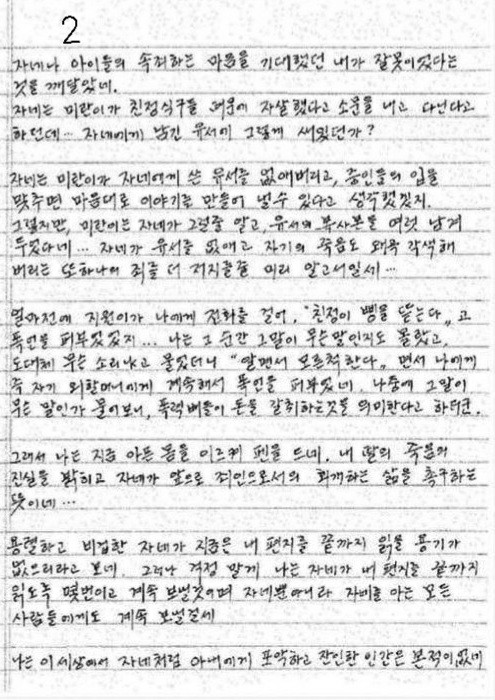 2
자네나 아이들의 속죄하는 마음을 기대했던 내가 잘못이었다는
것을 깨달았네.
자네는 미란이가 친정식구들 때문에 자살했다고 소문을 내고 다닌다고
하던데… 자네에게 남긴 유서에 그렇게 써있던가?
자네는 미란이가 자네에게 쓴 유서를 없애버리고, 증인들의 입을
맞추면 마음대로 이야기를 만들어 낼 수 있다고 생각했겠지.
그렇지만, 미란이는 자네가 그럴줄 알고, 유서의 복사본을 여럿 남겨
두었다네… 자네가 유서를 없애고 자기의 죽음도 왜곡 각색해
버리는 또하나의 죄를 더 저지를줄 미리 알고서일세…
얼마전에 지원이가 나에게 전화를 걸어, "친정이 삥을 뜯는다" 고
폭언을 퍼부었었지… 나는 그 순간 그말이 무슨말인지도 몰랐고,
도대체 무슨 소리냐고 물었더니 "알면서 모르척한다" 면서 나에게
즉 자기 외할머니에게 계속해서 폭언을 퍼부었네. 나중에 그말이
무슨 말인가 물어보니, 폭력배들이 돈을 갈취하는것을 의미한다고 하더군.
그래서 나는 지금 아픈 몸을 이르켜 펜을 드네. 내 딸의 죽음의
진실을 밝히고 자네가 앞으로 죄인으로서의 회개하는 삶을 촉구하는
뜻이네…
용렬하고 비겁한 자네가 지금은 내 편지를 끝까지 읽을 용기가
없으리라고 보네. 그러나 걱정 말게 나는 자네가 내 편지를 끝까지
읽도록 몇번이고 계속 보낼것이며 자네뿐아니라 자네를 아는 모든
사람들에게도 계속 보낼걸세
나는 이 세상에서 자네처럼 아내에게 포악하고 잔인한 인간은 본적이없네